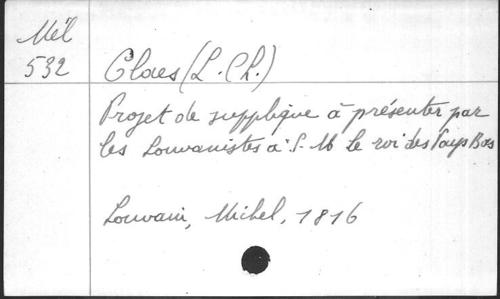 Mél
532
Claes (L. Ch.)
Projet de supplique à présenter par
les Louvanistes à S. M le roi des Pays Bas
Louvain, Michel, 1816